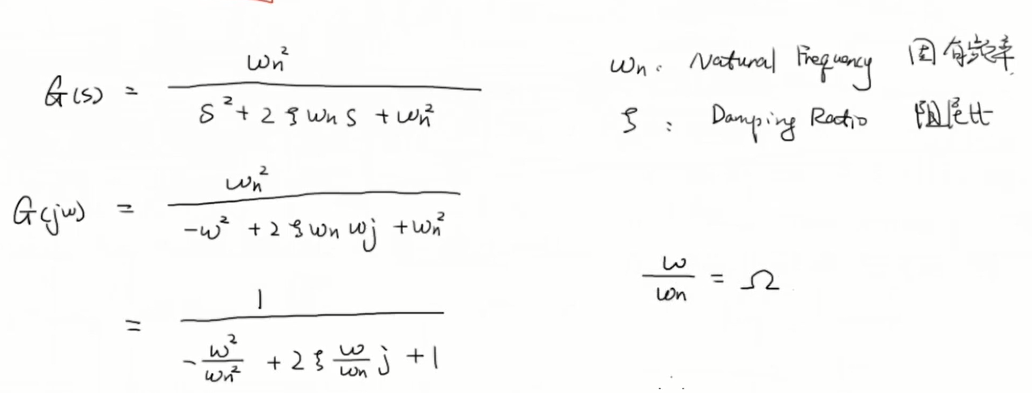 G(s) = ωn² / (s² + 2ζωn s + ωn²)
ωn: Natural Frequency 固有频率
ζ: Damping Ratio 阻尼比
G(jω) = ωn² / (-ω² + 2ζωn ωj + ωn²)
ω/ωn = Ω
= 1 / (-ω²/ωn² + 2ζ ω/ωn j + 1)